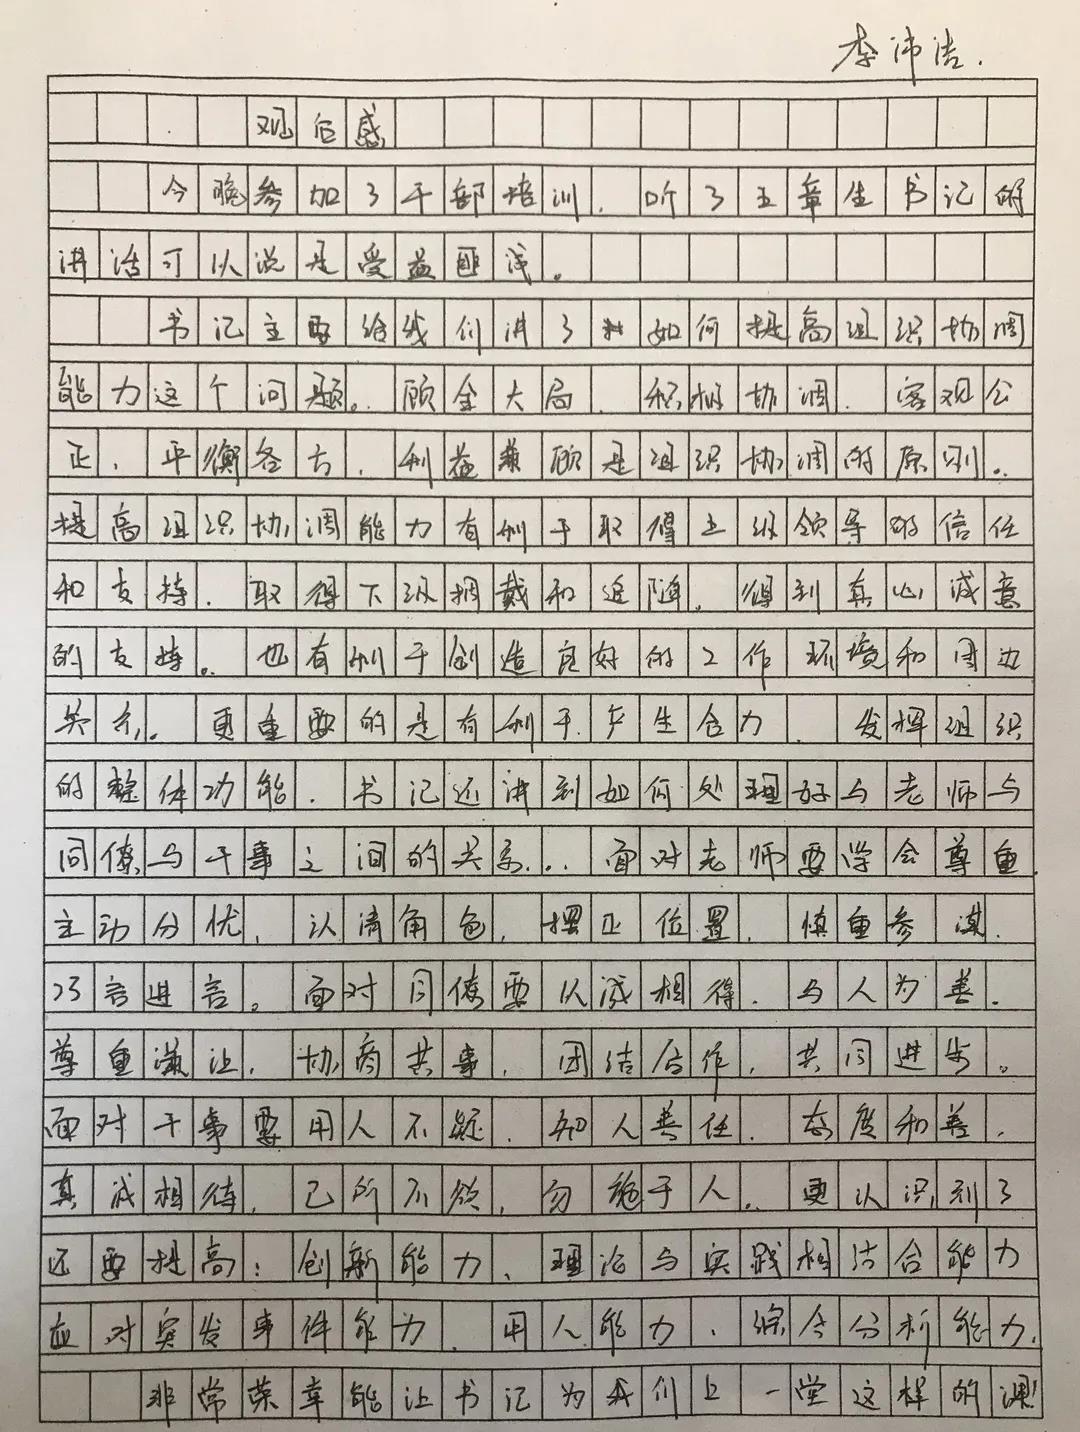 李沛洁.
观后感
今晚参加了干部培训,听了王章生书记的
讲话可以说是受益匪浅。
书记主要给我们讲了如何提高组织协调
能力这个问题。顾全大局、积极协调、客观公
正、平衡各方、利益兼顾是组织协调的原则。
提高组织协调能力有利于取得上级领导的信任
和支持、取得下级拥戴和追随、得到真心诚意
的支持。也有利于创造良好的工作环境和周边
关系。更重要的是有利于产生合力、发挥组织
的整体功能。书记还讲到如何处理好与老师与
同僚与干事之间的关系。面对老师要学会尊重
主动分忧,认清角色,摆正位置,慎重参谋,
巧言进言。面对同僚要以诚相待、与人为善、
尊重谦让,协商共事,团结合作,共同进步。
面对干事要用人不疑、知人善任、态度和善,
真诚相待,己所不欲,勿施于人。更认识到了
还要提高:创新能力、理论与实践相结合能力
应对突发事件能力、用人能力、综合分析能力.
非常荣幸能让书记为我们上一堂这样的课!